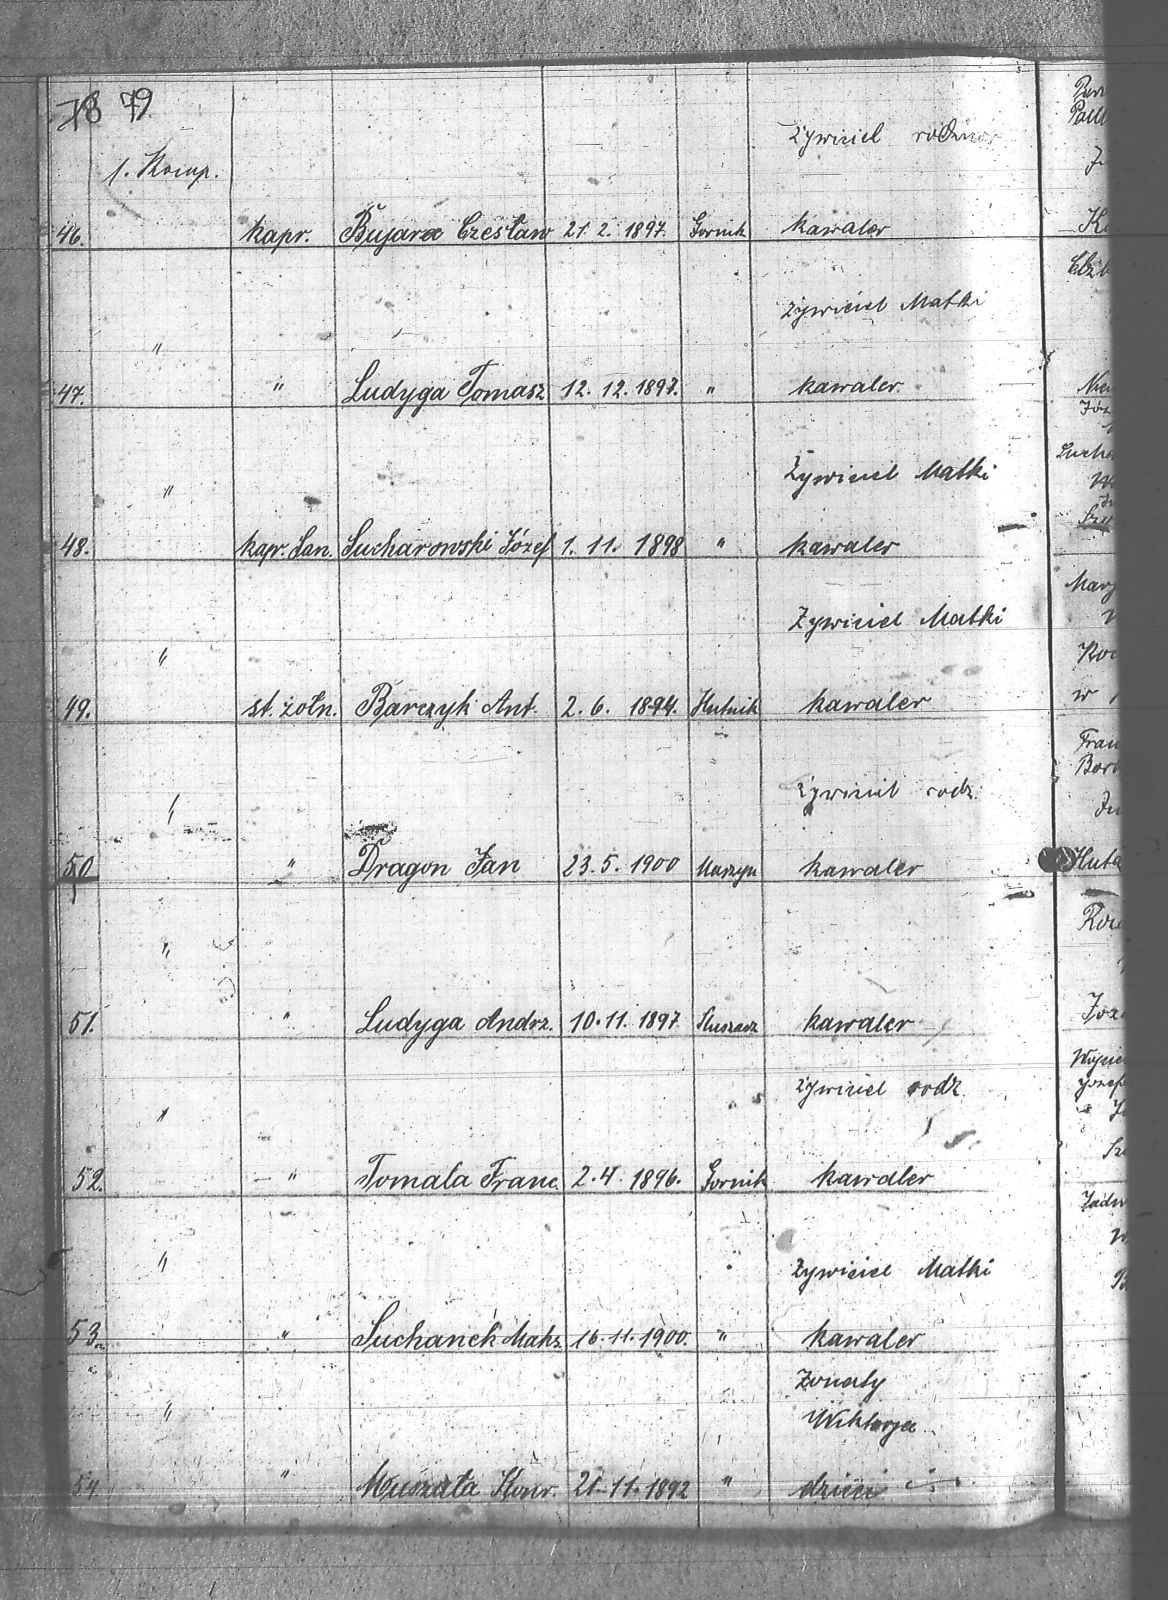 78 79
żywiciel
1. Komp.
46. kapr. Czesław 21. 2. 1897. Gornik kawaler
żywiciel Matki
"
47. " Ludyga Tomasz 12. 12. 1897. " kawaler.
Żywiciel Matki
"
48. kapr. San. Sucharowski Józef 1. 11. 1898 " kawaler
Żywiciel Matki
"
49. st. żołn. Barczyk Ant. 2. 6. 1894. Hutnik kawaler
żywiciel rodz.
"
50 " Dragon Jan 23. 5. 1900 Maszyn kawaler
"
51. " Ludyga Andrz. 10. 11. 1897 kawaler
żywiciel rodz.
"
52. " Tomala Franc. 2. 4. 1896. Gornik kawaler
"
żywiciel Matki
53. " Suchanek Maks. 16. 11. 1900. " kawaler
Żonaty
" Wiktorja
54 " 21. 11. 1892 " dzieci